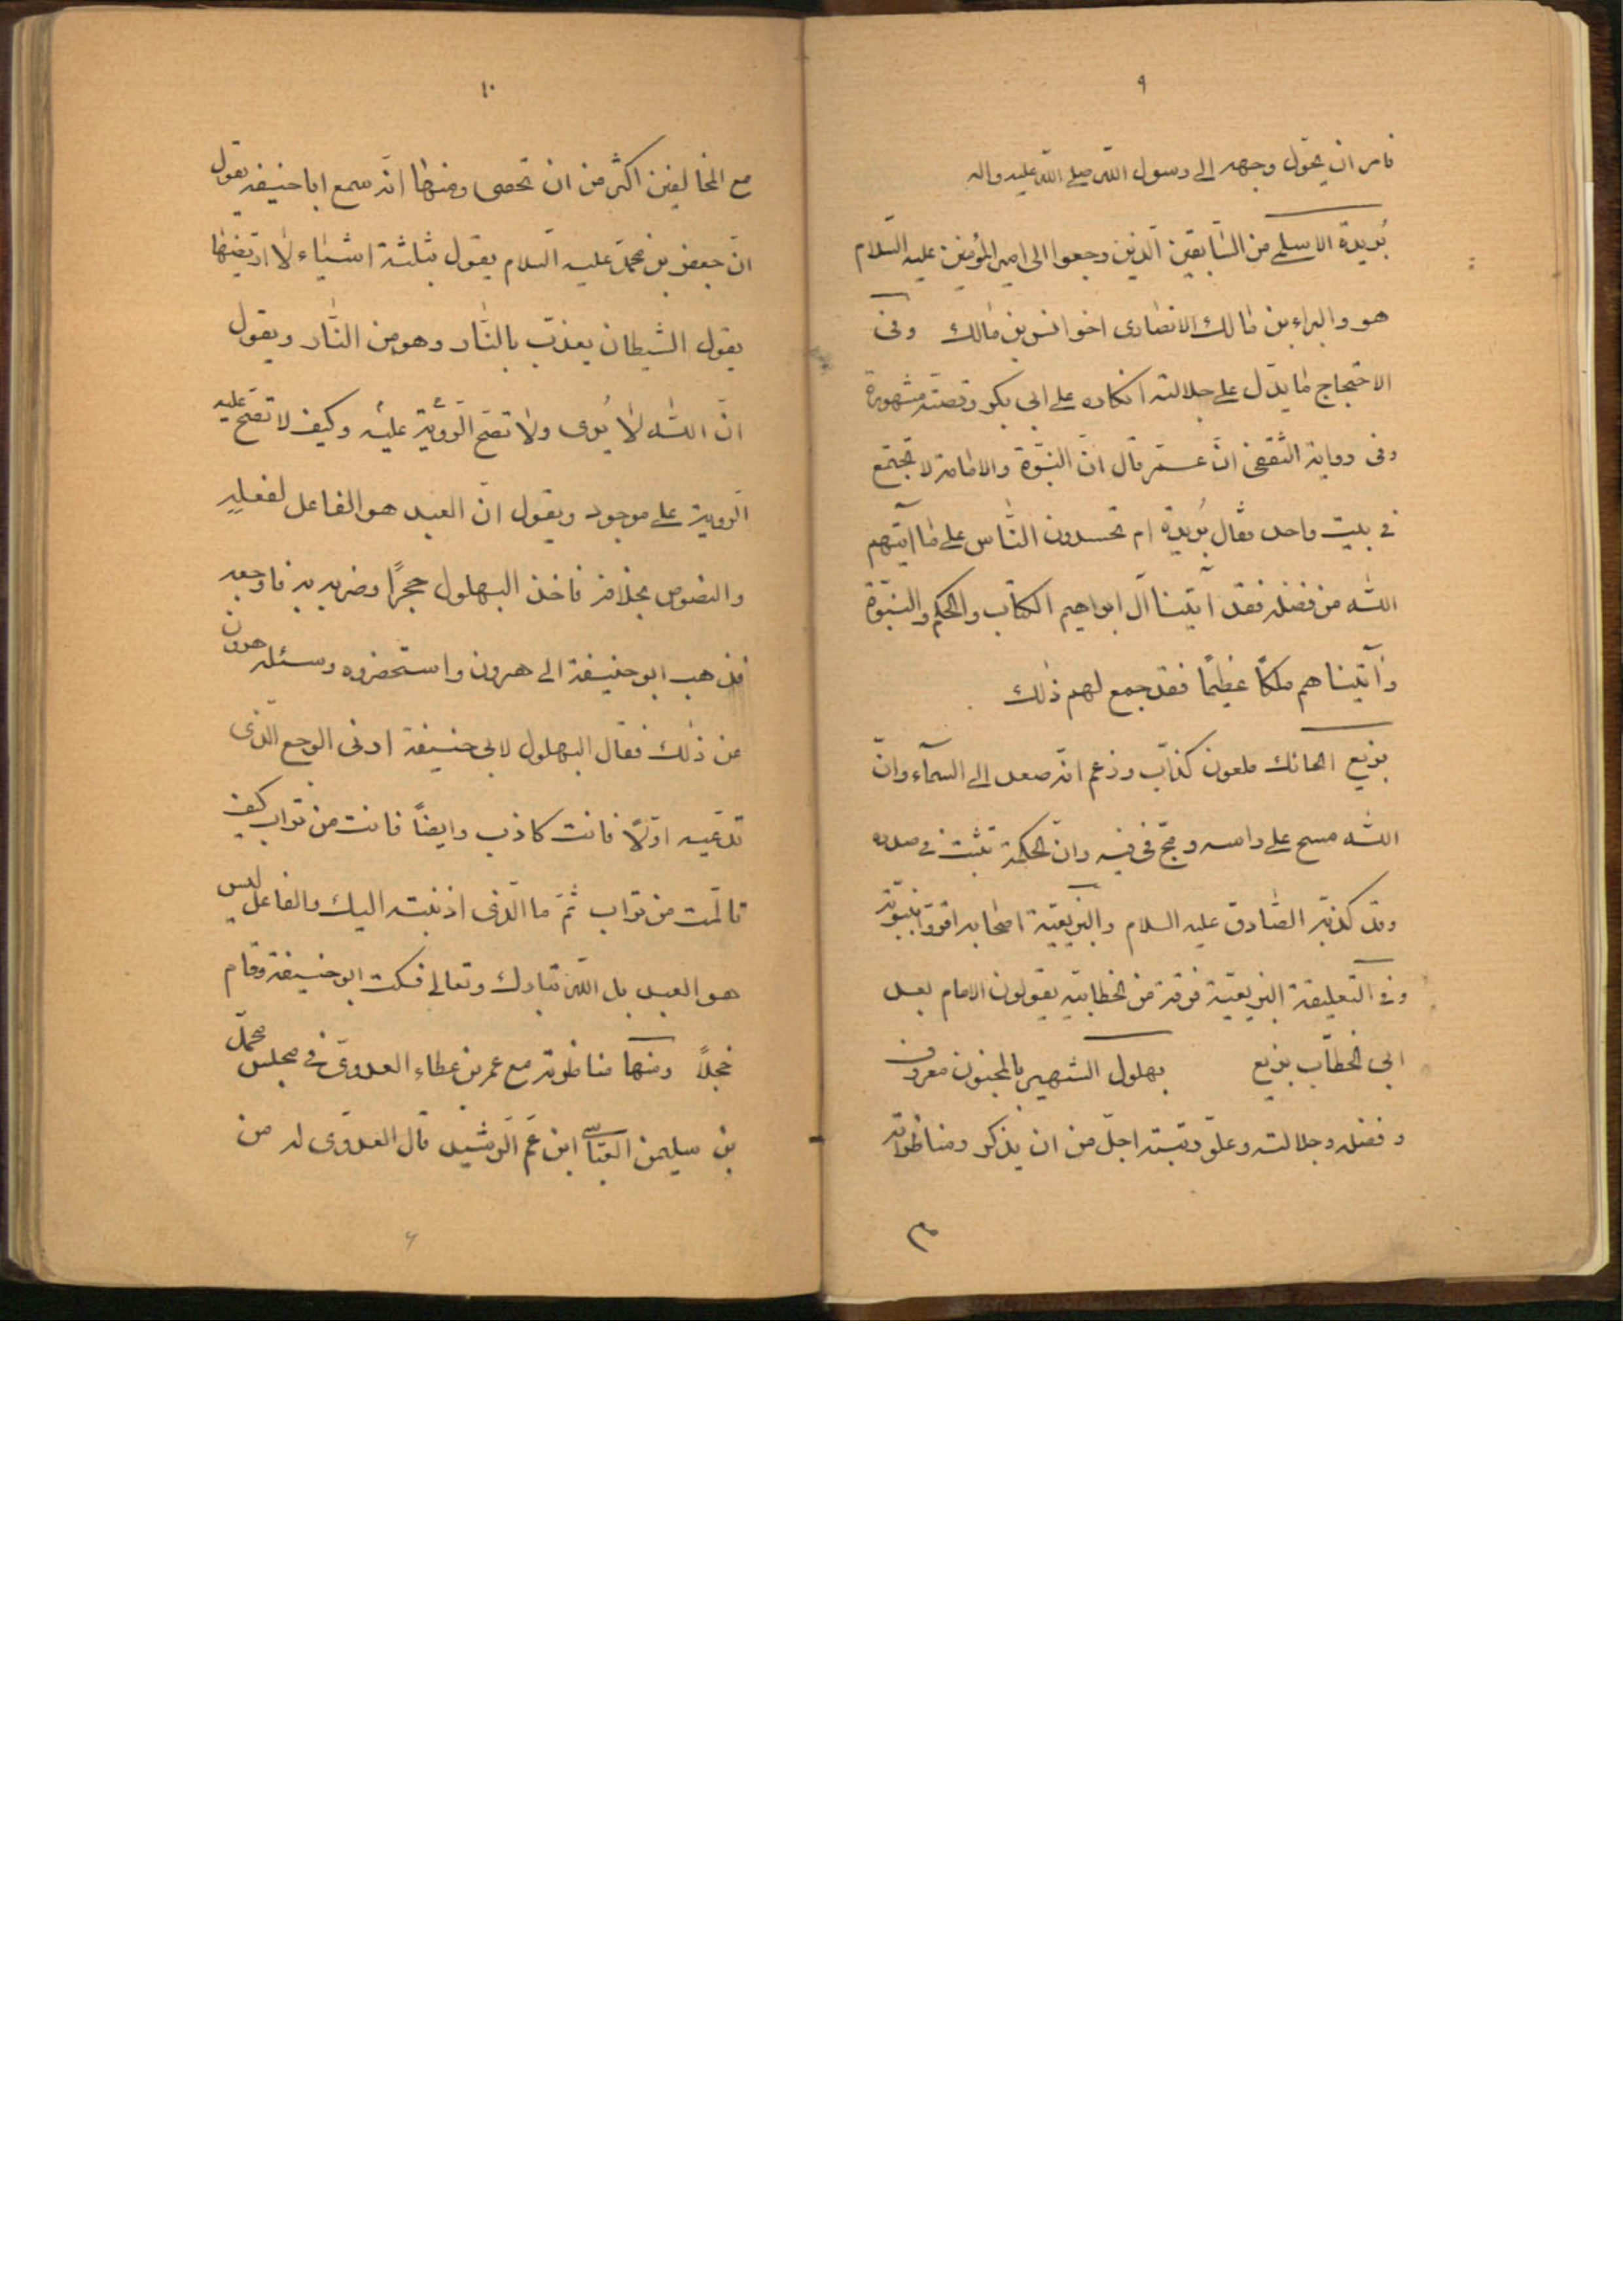 ٩
فامر ان يحوّل وجهه الى رسول اللّه صلى اللّه عليه واله
بُريدة الاسلمى من السّابقين الّذين رجعوا الى امير المؤمنين عليه السّلام
هو والبراء بن مالك الانصارى اخو انس بن مالك وفى
الاحتجاج ما يدّل على جلالته انكاره على ابى بكر وقصّته مشهورة
وفى رواية الثّقفى انّ عمر قال انّ النبّوة والامامة لا تجتمع
فى بيت واحد فقال بُريدة ام تحسدون النّاس على ما آتيهم
اللّه من فضله فقد آتينا آل ابراهيم الكتاب والحكم والنبّوة
وآتيناهم ملكاً عظيماً فقد جمع لهم ذلك
بزيع الحائك ملعون كذّاب وزعم انّه صعد الى السمآء وانّ
اللّه مسح على راسه ومجّ فى فيه وانّ الحكمة تثبت فى صدره
وقد كذّبه الصّادق عليه السلام والبزيعيّة اصحابه اقرّوا بنبوّته
وفى التعليقة البزيعيّة فرقة من الخطابيّة يقولون الامام بعد
ابى الخطّاب بزيع بهلول الشهير بالمجنون معروف
وفضله وجلالته وعلوّ رتبته اجلّ من ان يذكر ومناظراته
١٠
مع المخالفين اكثر من ان تحصى ومنها انّه سمع ابا حنيفه يقول
انّ جعفر بن محمّد عليه السّلام يقول بثلثة اشياء لا ارتضيها
يقول الشيطان يعذّب بالنّار وهو من النّار ويقول
انّ اللّه لا يُرى ولا تصّح الرّؤية عليه وكيف لا تصّح عليه
الرّوية على موجود ويقول انّ العبد هو الفاعل لفعله
والنصوص بخلافه فاخذ البهلول حجراً وضربه به فاوجعه
فذهب ابو حنيفة الى هرون واستحضروه وسئله هرون
عن ذلك فقال البهلول لابى حنيفة ارنى الوجع الّذى
تدّعيه اوّلاً فانت كاذب وايضاً فانت من تراب كيف
تالّمت من تراب ثمّ ما الّذى اذنبته اليك والفاعل ليس
هو العبد بل اللّه تبارك وتعالى فسكت ابو حنيفة وقام
خجلاً ومنها مناظرته مع عمر بن عطاء العدوىّ فى مجلس محمّد
بن سليمن العبّاسى ابن عمّ الرّشيد قال العدوّى له من